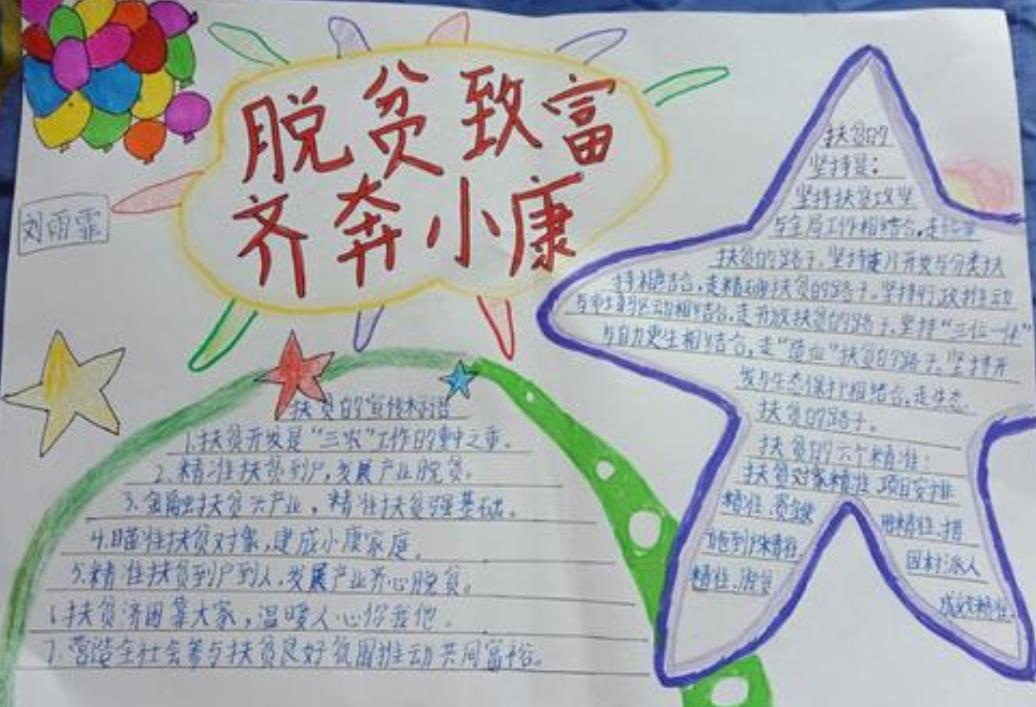 脱贫致富
齐奔小康
刘雨霏
扶贫的宣传标语
1.扶贫开发是“三农”工作的重中之重。
2.精准扶贫到户,发展产业脱贫。
3.金融扶贫兴产业,精准扶贫强基础。
4.瞄准扶贫对象,建成小康家庭。
5.精准扶贫到户到人,发展产业齐心脱贫。
6.扶贫济困靠大家,温暖人心你我他。
7.营造全社会参与扶贫良好氛围推动共同富裕。
扶贫的
坚持是:
坚持扶贫攻坚
与全局工作相结合,走
扶贫的路子,坚持连片开发与分类扶
持相结合,走精确扶贫的路子。坚持行政推动
与市场驱动相结合,走开放扶贫的路子,坚持“三位一体”
与自力更生相结合,走“造血”扶贫的路子,坚持开
发与生态保护相结合,走生态
扶贫的路子。
扶贫的六个精准:
扶贫对象精准 项目安排
精准、资金使用精准、措
施到户精准 因村派人
精准、脱贫成效精准。